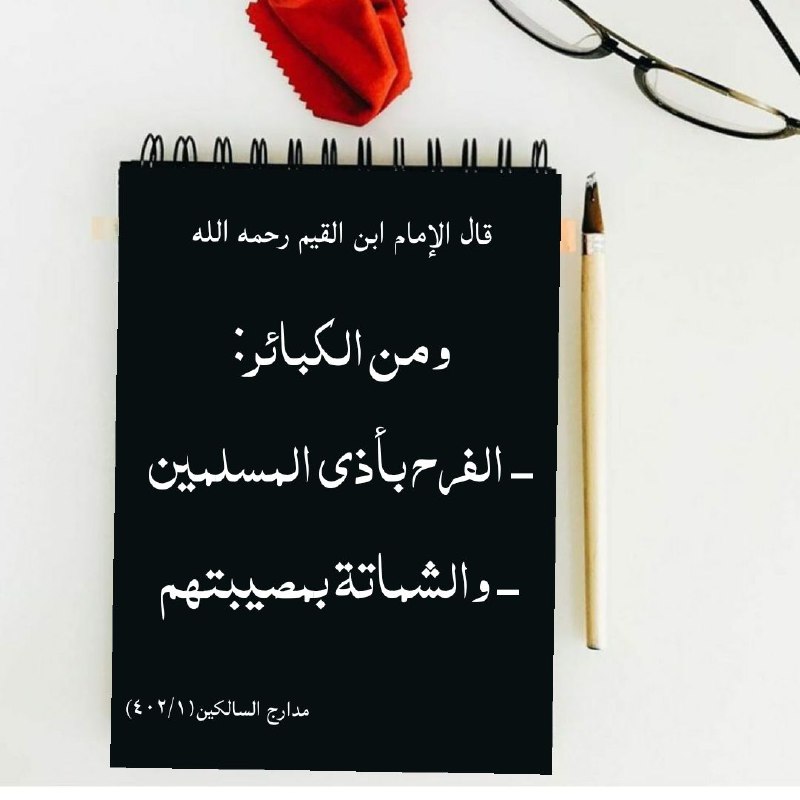 قال الإمام ابن القيم رحمه الله
ومن الكبائر:
- الفرح بأذى المسلمين
- والشماتة بمصيبتهم
مدارج السالكين (٤٠٢/١)